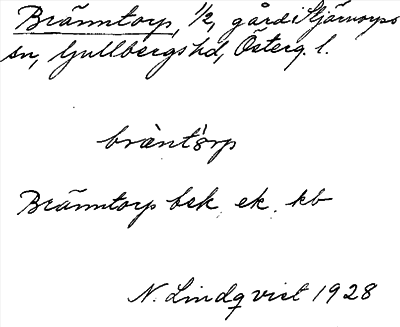 Bränntorp, 1/2, gård i Stjärnorps
sn, Gullbergs hd, Österg. l.
bra`nt´ɔrp
Bränntorp bsk, ek, kb
N. Lindqvist 1928